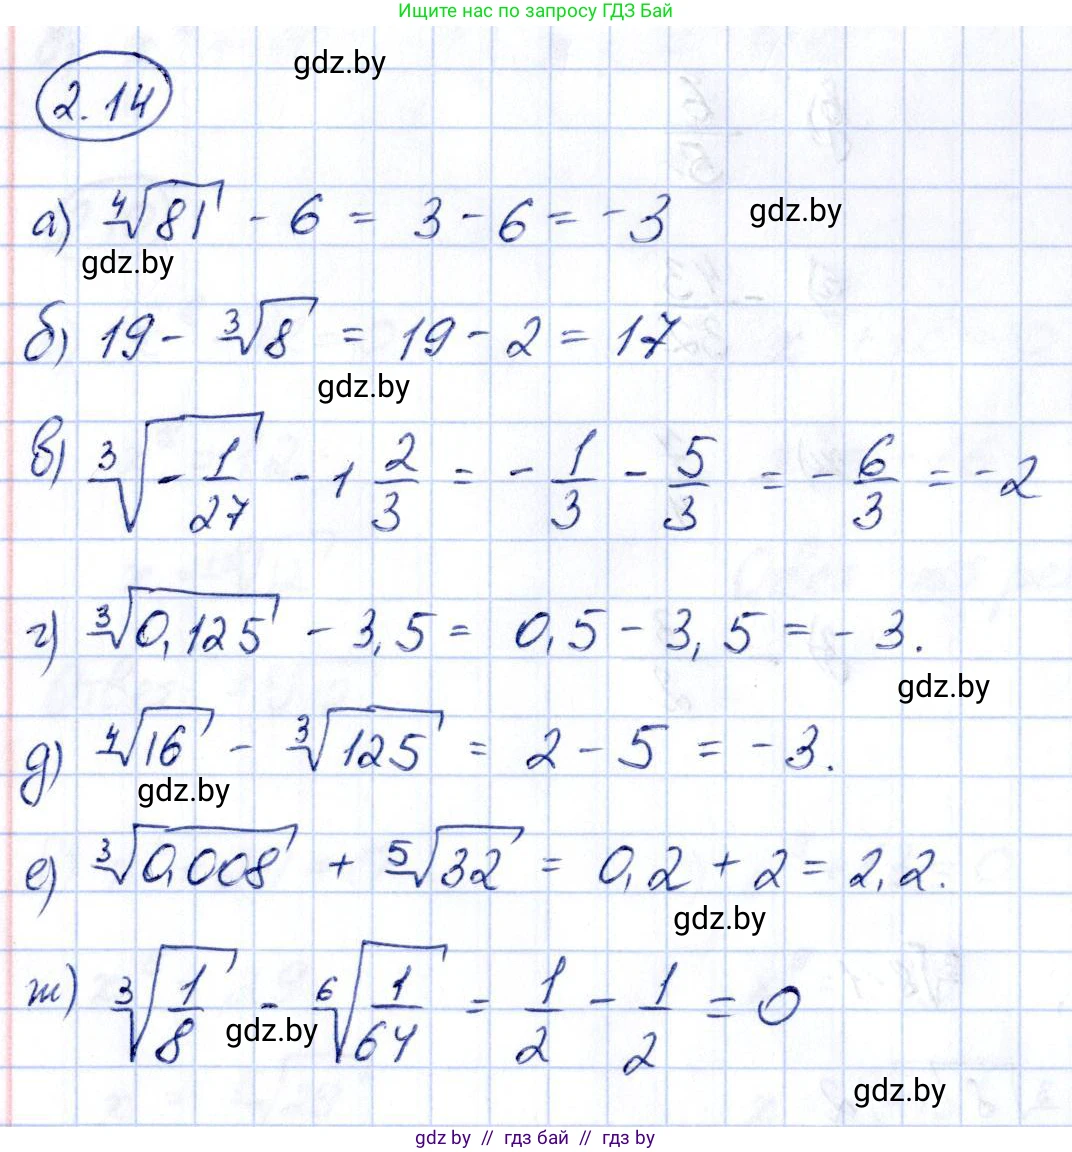 Ищите нас по запросу ГДЗ Бай
gdz.by
2.14
а) ∜81 - 6 = 3 - 6 = -3
gdz.by
gdz.by
б) 19 - ∛8 = 19 - 2 = 17
gdz.by
в) ∛(-1/27) - 1 2/3 = -1/3 - 5/3 = -6/3 = -2
г) ∛0,125 - 3,5 = 0,5 - 3,5 = - 3.
gdz.by
д) ∜16 - ∛125 = 2 - 5 = -3.
gdz.by
е) ∛0,008 + ⁵√32 = 0,2 + 2 = 2,2.
gdz.by
ж) ∛(1/8) - ⁶√(1/64) = 1/2 - 1/2 = 0
gdz.by
gdz.by
gdz by // гдз бай // gdz by